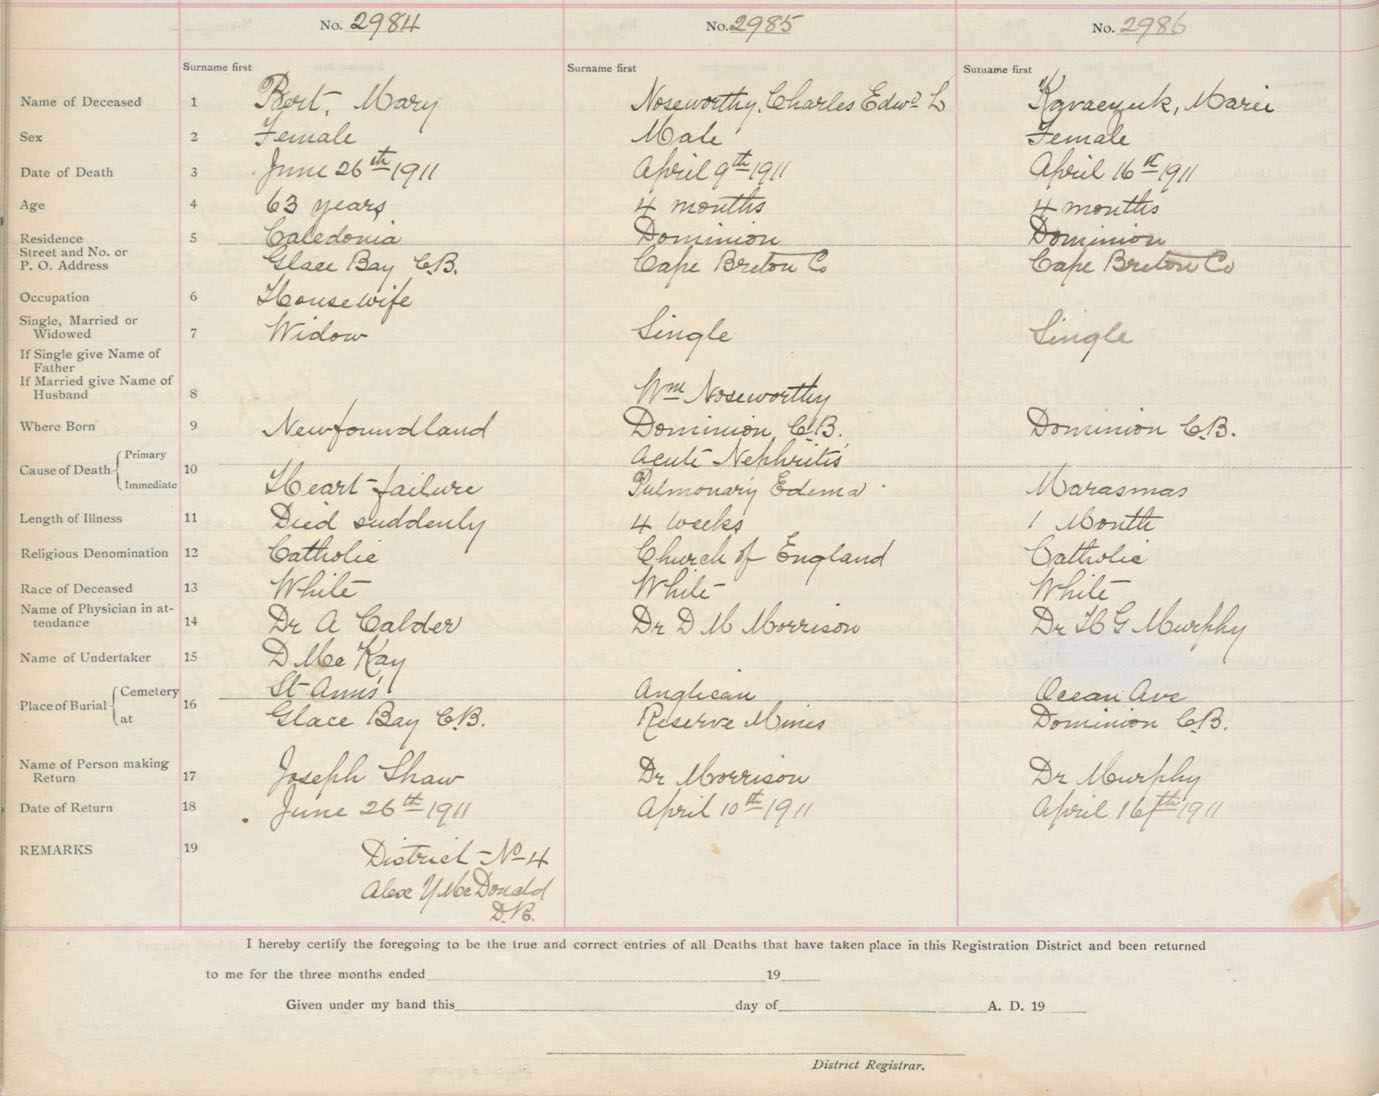 No. 2984
No. 2985
No. 2986
Surname first
Surname first
Surname first
Name of Deceased 1 Bert, Mary Noseworthy, Charles Edwd L Marie
Sex 2 Female Male Female
Date of Death 3 June 26th 1911 April 9th 1911 April 16th 1911
Age 4 63 years 4 months 4 months
Residence 5 Caledonia Dominion Dominion
Street and No. or
P. O. Address Glace Bay C.B. Cape Breton Co Cape Breton Co
Occupation 6 Housewife
Single, Married or
Widowed 7 Widow Single Single
If Single give Name of
Father
If Married give Name of
Husband 8 Wm Noseworthy
Where Born 9 Newfoundland Dominion C.B. Dominion C.B.
Cause of Death 10 Primary Acute Nephritis
Immediate Heart failure Pulmonary Edema Marasmas
Length of Illness 11 Died suddenly 4 weeks 1 Month
Religious Denomination 12 Catholic Church of England Catholic
Race of Deceased 13 White White White
Name of Physician in at-
tendance 14 Dr A Calder Dr D M Morrison Dr H G Murphy
Name of Undertaker 15 D McKay
Place of Burial 16 Cemetery St Ann's Anglican Ocean Ave
at Glace Bay C.B. Reserve Mines Dominion C.B.
Name of Person making
Return 17 Joseph Shaw Dr Morrison Dr Murphy
Date of Return 18 June 26th 1911 April 10th 1911 April 16th 1911
REMARKS 19 District No 4
Alex McDonald
D.R.
I hereby certify the foregoing to be the true and correct entries of all Deaths that have taken place in this Registration District and been returned
to me for the three months ended 19
Given under my hand this day of A. D. 19
District Registrar.